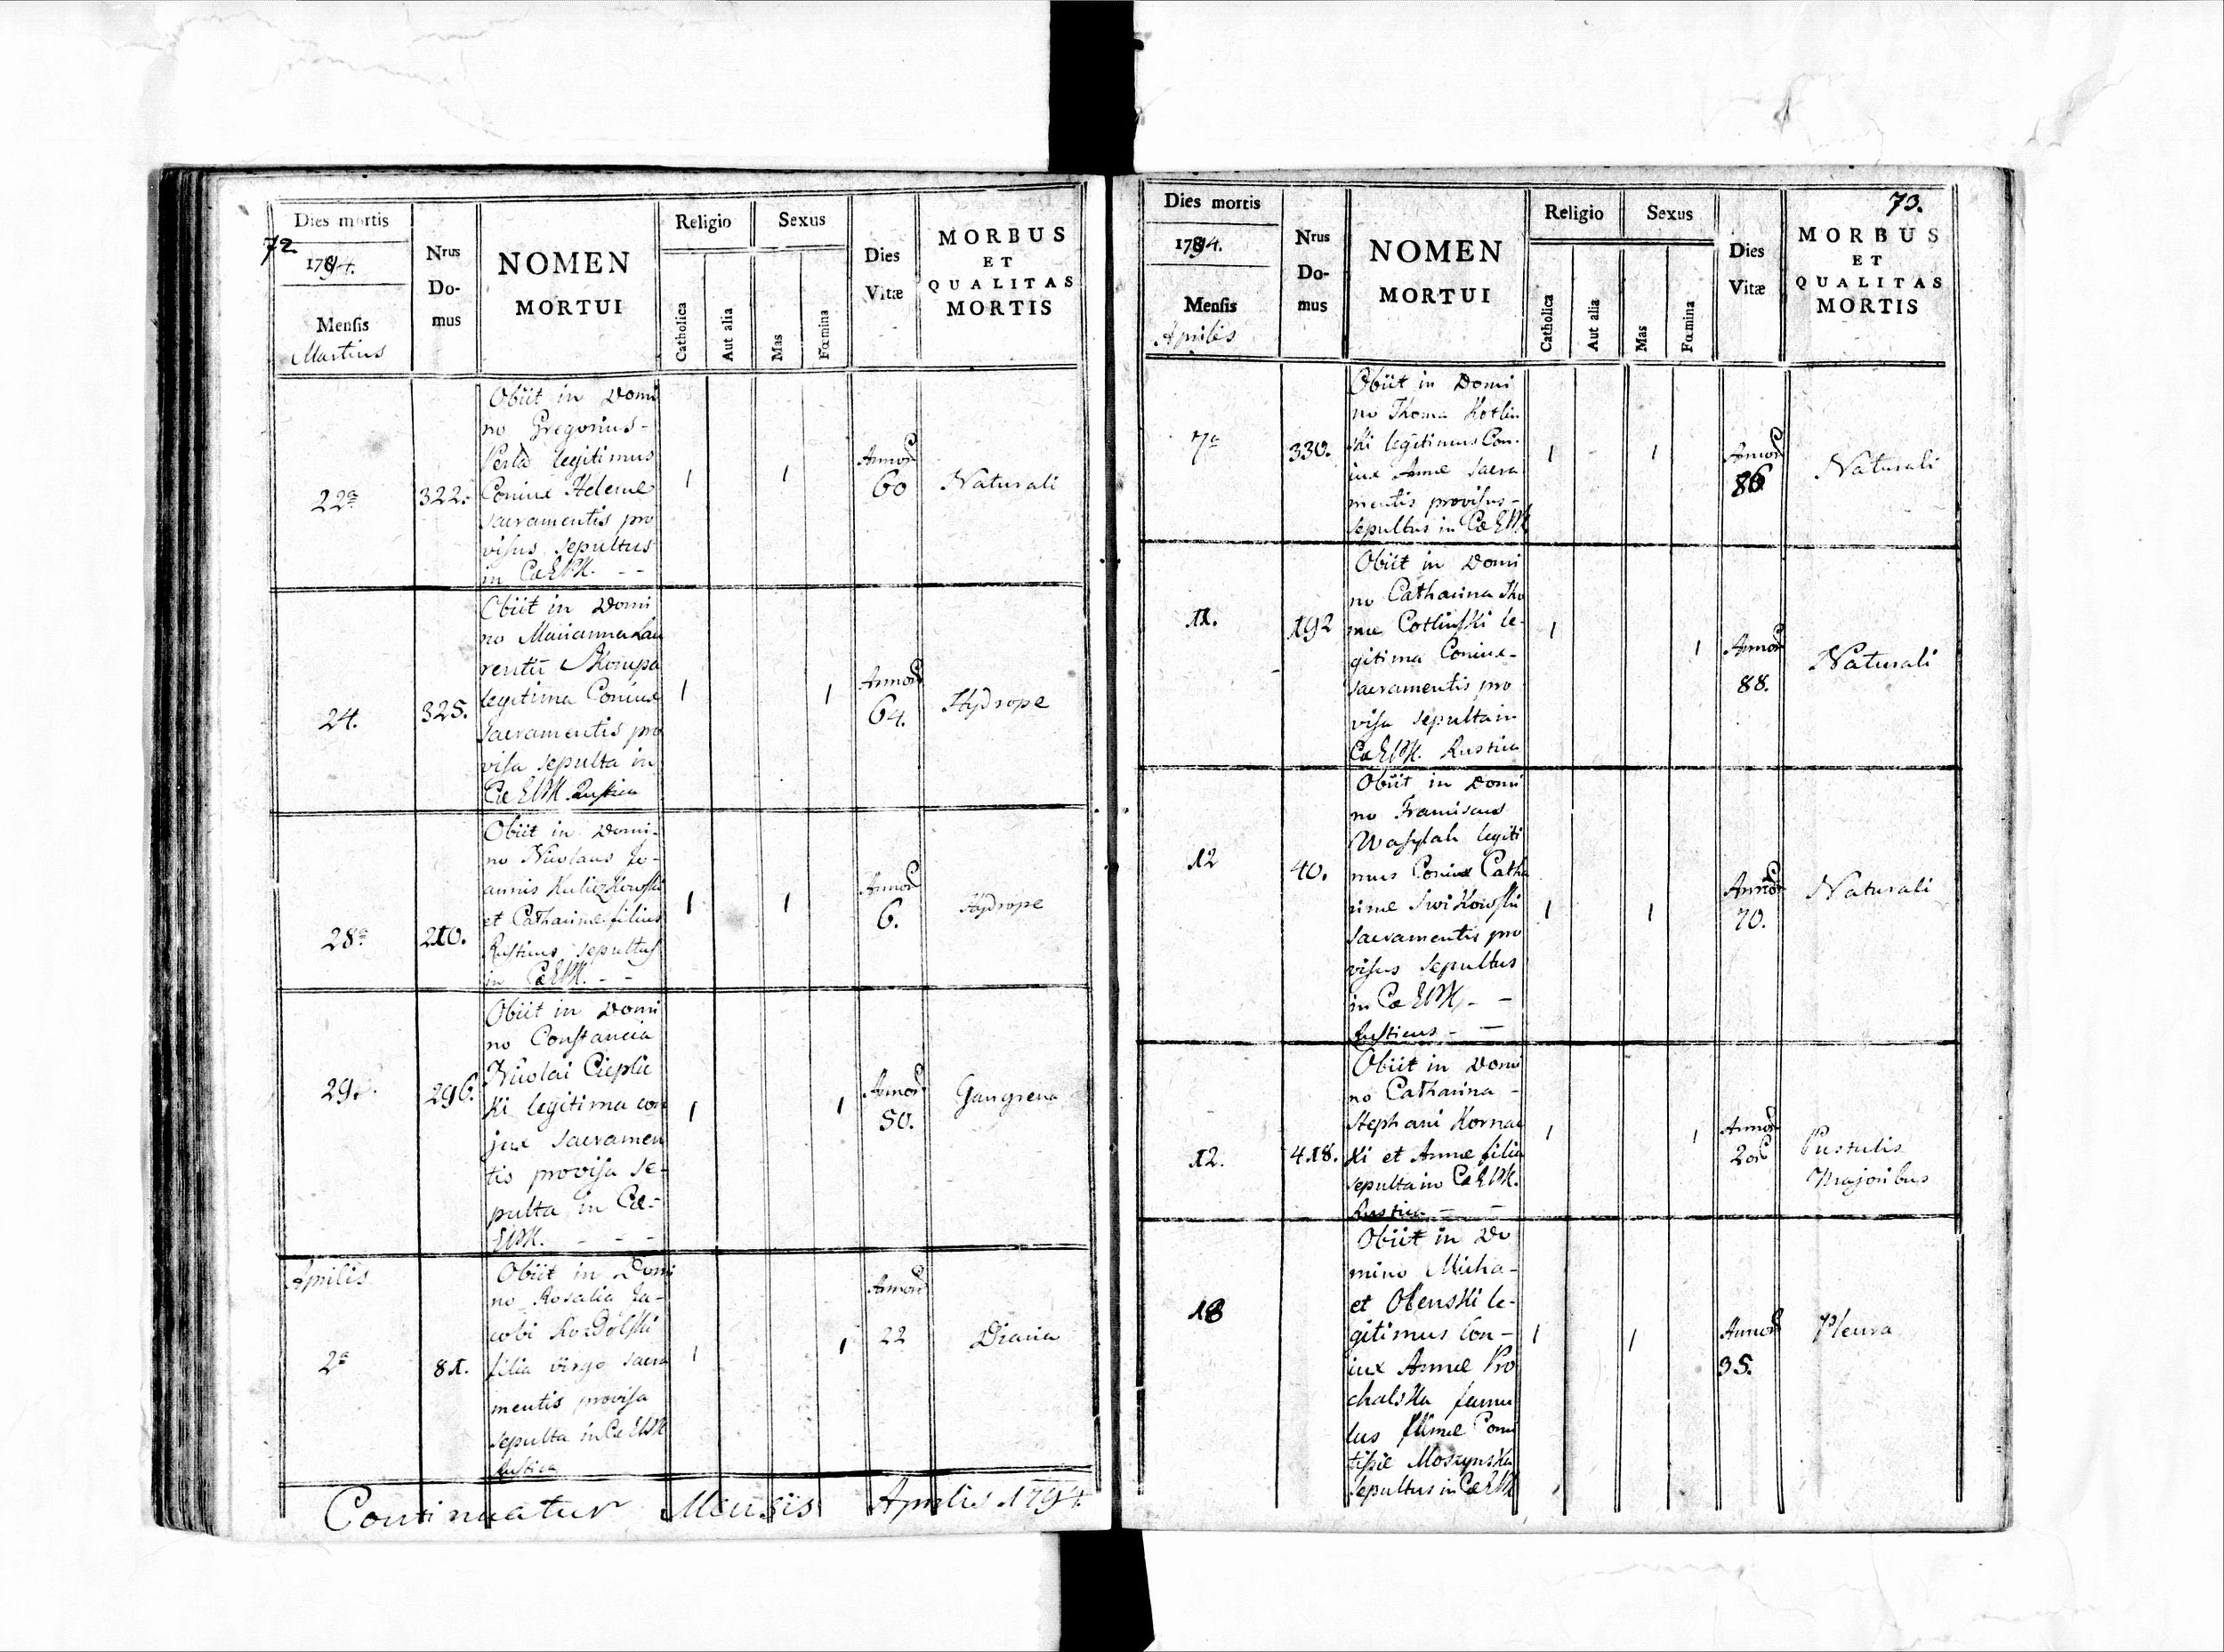 72.
Dies mortis
1794.
Mensis
Martius
Nrus
Do-
mus
NOMEN
MORTUI
Religio
Catholica
Aut alia
Sexus
Mas
Fœmina
Dies
Vitæ
MORBUS
ET
QUALITAS
MORTIS
22a
322.
Obiit in Domi
no Gregorius
legitimus
Coniux Helenæ
sacramentis pro
visus sepultus
in Cæ
1
1
Annor
60
Naturali
24.
325.
Obiit in Domi
no Marianna Lau
rentii Skorupa
legitima Coniux
sacramentis pro
visa sepulta in
Cæ Rustica
1
1
Annor
64.
Hydrope
28a
210.
Obiit in Domi-
no Nicolaus Jo-
annis
et Catharinæ filius
Rusticus sepultus
in Cæ - -
1
1
Annor
6.
Hydrope
29.
296.
Obiit in Domi
no Constancia
Nicolai Cieplic
ki legitima con
jux sacramen
tis provisa se-
pulta in Cæ-
- - -
1
1
Annor
50.
Gangrena
Aprilis
2a
81.
Obiit in Domi
no Rosalia Ja-
cobi Rozdolski
filia virgo sacra
mentis provisa
sepulta in Cæ
Rustica
1
1
Annor
22
Diaria
Continuatur Mensis Aprilis 1794.
73.
Dies mortis
1794.
Mensis
Aprilis
Nrus
Do-
mus
NOMEN
MORTUI
Religio
Catholica
Aut alia
Sexus
Mas
Fœmina
Dies
Vitæ
MORBUS
ET
QUALITAS
MORTIS
7a
330.
Obiit in Domi
no Thoma Kotlin
ski legitimus Con-
iux Annæ sacra
mentis provisus-
sepultus in Cæ
1
1
Annor
86
Naturali
11.
192
Obiit in Domi
no Catharina Tho
mæ Cotlinski le-
gitima Coniux-
sacramentis pro
visa sepulta in
Cæ Rustica
1
1
Annor
88.
Naturali
12
40.
Obiit in Domi
no Franciscus
Wasylah legiti
mus Coniux Catha
rinæ Swikowski
sacramentis pro
visus sepultus
in Cæ - -
Rusticus - -
1
1
Annor
70.
Naturali
12.
418.
Obiit in Domi
no Catharina -
Stephani Kornac
ki et Annæ filia
sepulta in Cæ
Rustica - -
1
1
Annor
Pustulis
Majoribus
18
Obiit in Do
mino Micha-
el Olenski le-
gitimus Con-
iux Annæ Pro
chalska famu
lus Com
tissæ Moszynska
sepultus in Cæ
1
1
Annor
35.
Pleura